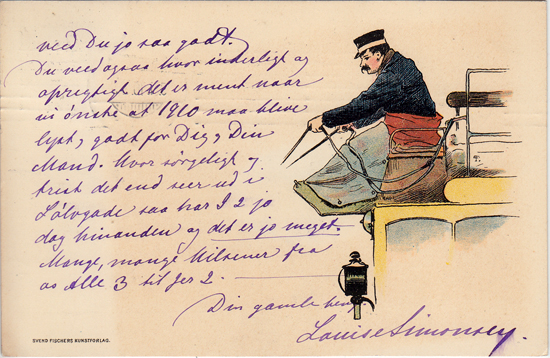 veed Du jo saa godt.
Du veed ogsaa hvor inderligt og
oprigtigt det er ment naar
vi ønske at 1910 maa blive
lyst, godt for Dig, Din
Mand. Hvor sørgeligt og
trist det end seer ud i
Sølvgade saa har I 2 jo
dog hinanden og det er jo meget.
Mange, mange Hilsener fra
os Alle 3 til Jer 2.
Din gamle
Louise Simonsen.
SVEND FISCHERS KUNSTFORLAG.